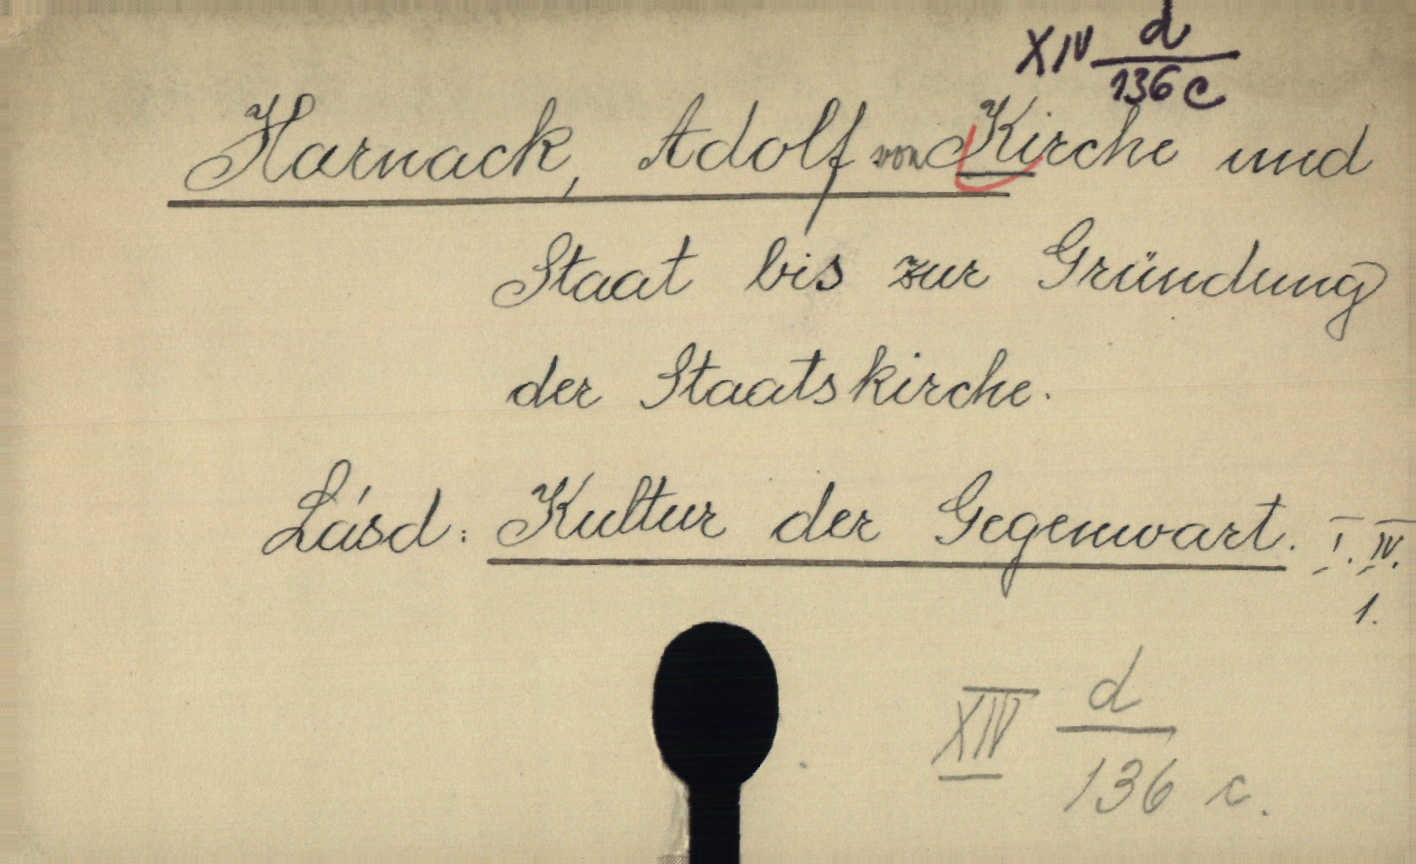 XIV d/136 c
Harnack, Adolf von Kirche und
Staat bis zur Gründung
der Staatskirche.
Lásd: Kultur der Gegenwart. I. IV.
1.
XIV d/136 c.